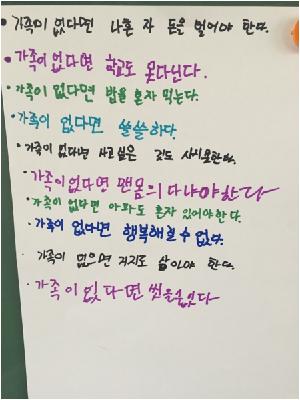 • 가족이 없다면 나혼 자 돈을 벌어야 한다.
• 가족이 없다면 학교도 못다닌다.
• 가족이 없다면 밥을 혼자 먹는다.
• 가족이 없다면 쓸쓸하다.
• 가족이 없다면 사고싶은 것도 사지못한다.
가족이 없다면 맨몸의 다녀야한다
• 가족이 없다면 아파도 혼자 있어야 한다.
• 가족이 없다면 행복해질 수 없다.
가족이 없으면 거지로 살아야 한다.
• 가족이 없다면 씻을 수없다